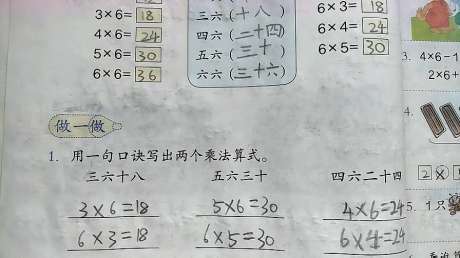 3×6=18 三六(十八) 6×3=18
4×6=24 四六(二十四) 6×4=24
5×6=30 五六(三十) 6×5=30
6×6=36 六六(三十六)
3. 4×6-1
2×6+
做一做
4.
1. 用一句口诀写出两个乘法算式。
三六十八 五六三十 四六二十四
2×
3×6=18 5×6=30 4×6=24
5. 1只
6×3=18 6×5=30 6×4=24